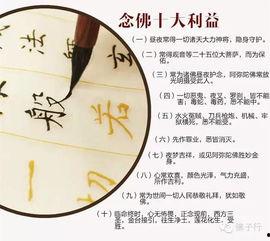 念佛十大利益
(一)昼夜常得一切诸天大力神将,隐身守护。
(二)常得观音等二十五位大菩萨,而为保佑。
(三)常为诸佛昼夜护念,阿弥陀佛常放光明摄受此人。
(四)一切恶鬼、夜叉、罗刹,皆不能害;毒蛇、毒药,悉不能中。
(五)水火冤贼、刀兵枪炮、杻械、牢狱横死,悉不能受。
(六)先作罪业,悉皆消灭。
(七)夜梦吉祥,或见阿弥陀佛胜妙金身。
(八)心常欢喜,颜色光泽,气力充盛,所作吉利。
(九)常为世间一切人民恭敬礼拜,犹如敬佛。
(十)临命终时,心无怖畏,正念现前,西方三圣,金台接引,往生净土,莲花化生,受胜。
法师
玄
般若
一切
佛子行